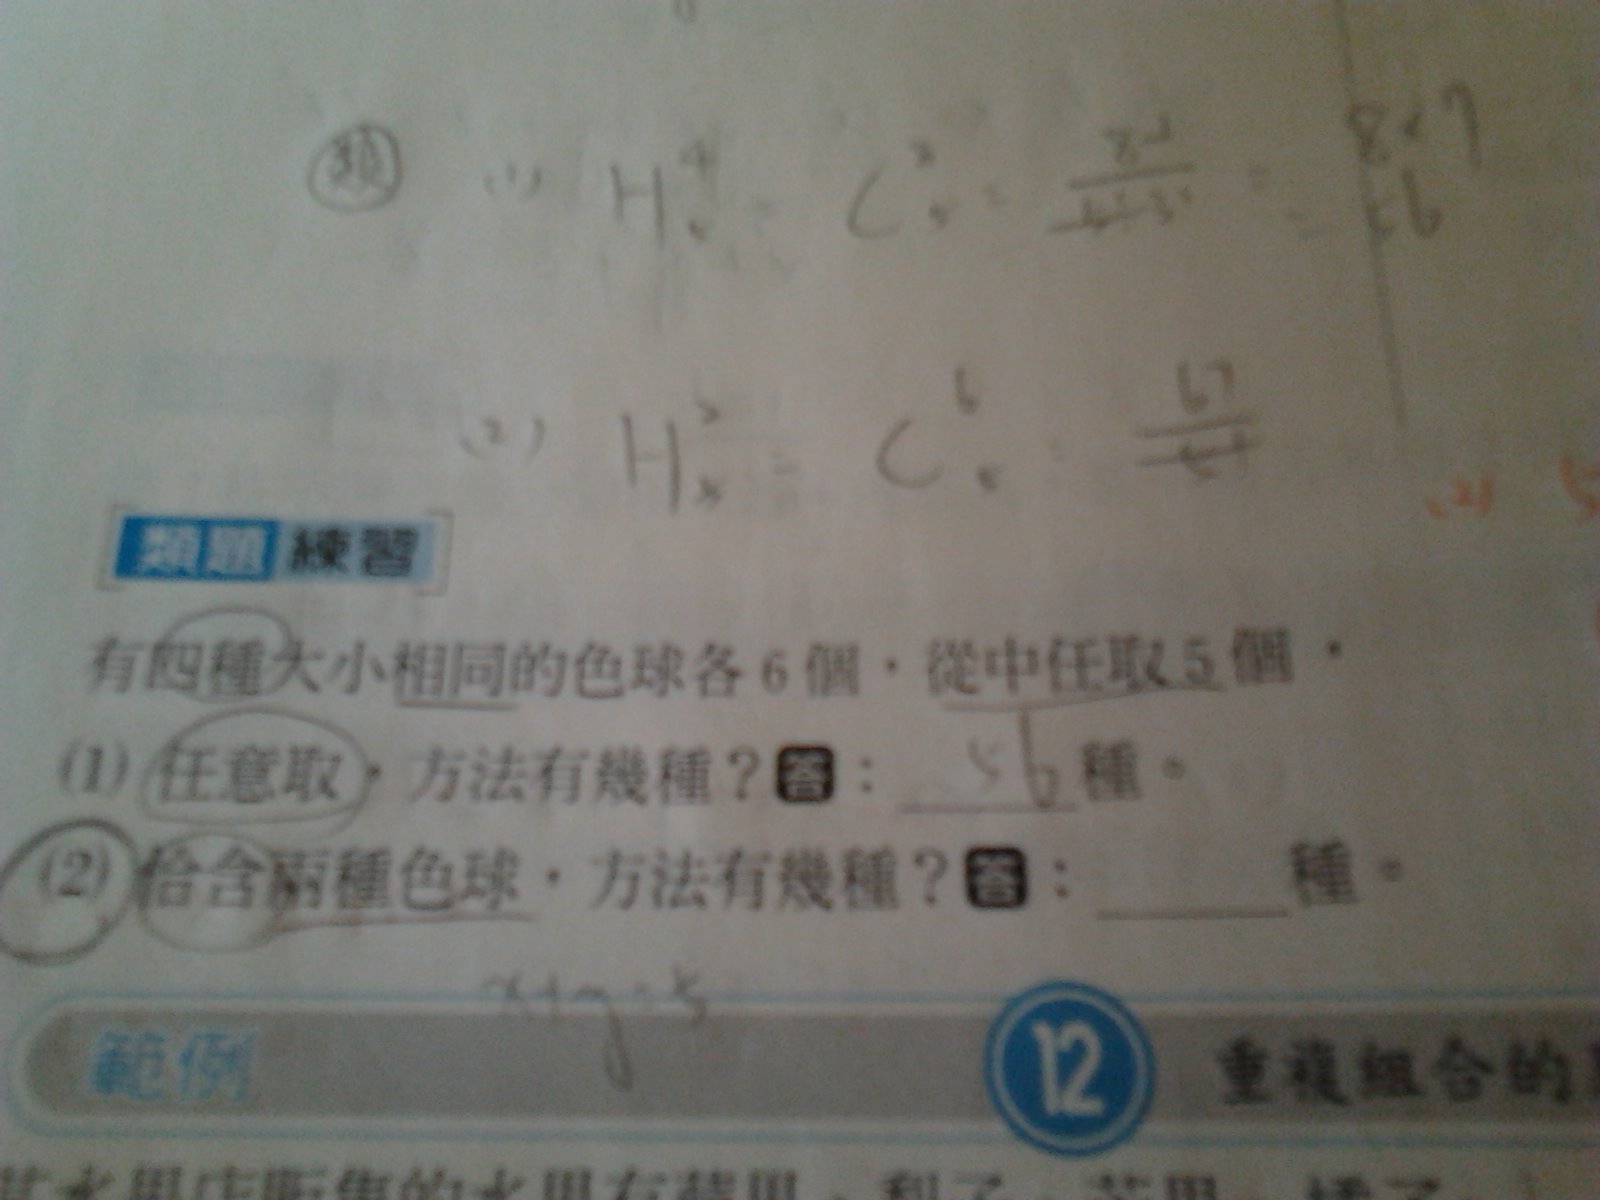 類 (1) H⁴₅ = C⁸₅ = 8! / 3!5! = 8×7
= 56
(2) H²₅ = C⁶₅ = 6! / 5!
類題 練習
有四種大小相同的色球各6個，從中任取5個，
(1) 任意取，方法有幾種？答：56種。
(2) 恰含兩種色球，方法有幾種？答：種。
x+y=5
範例 12 重複組合的